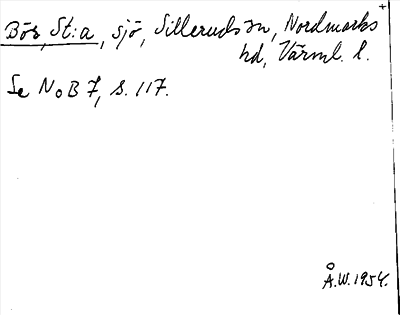 Bör, St:a, sjö, Silleruds sn, Nordmarks
hd, Värml. l.
Se NoB 7, s. 117.
Å.W. 1954.